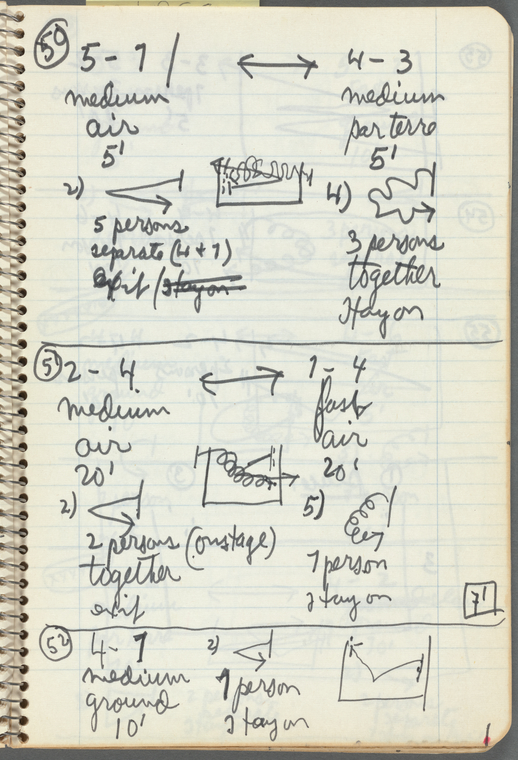 50
5 - 1
medium
air
5'
4 - 3
medium
par terre
5'
2)
5 persons
separate (4+1)
exit / stay on
4)
3 persons
together
stay on
51
2 - 4
medium
air
20'
1 - 4
fast
air
20'
2)
2 persons (onstage)
together
exit
5)
1 person
stay on
7'
52
4 - 1
medium
ground
10'
2)
1 person
stay on